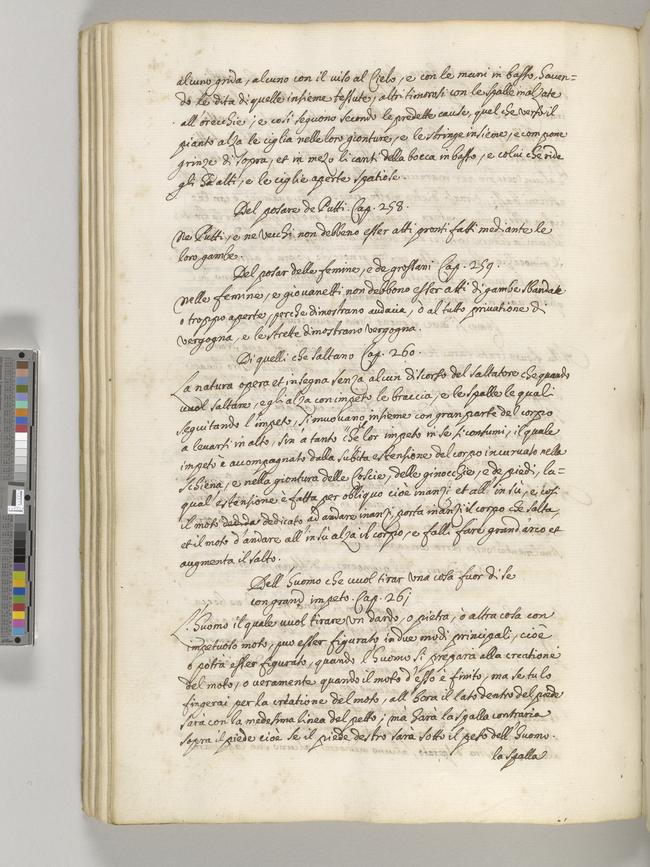 alcuno grida, alcuno con il viso al Cielo, e con le mani in basso, haven=
do le dita di quelle insieme tessute, altri timorosi con le spalle inalzate
all orecchie, e così seguono secondo le predette cause, quel che versa il
pianto alza le ciglia nelle loro gionture, e le stringe insieme, e compone
grinze di sopra, et in mezo li canti della bocca in basso, e colui che ride
gli ha alti, e le ciglie aperte spatiose.
Del posare de Putti. Cap. 258.
Ne Putti, e ne vecchi non debbeno esser atti pronti fatti mediante le
loro gambe.
Del posar delle femine, e de grossani Cap. 259.
Nelle femine, e giovanetti non debbono esser atti di gambe sbandate
o troppo aperte, perche dimostrano audacia, ò al tutto privatione di
vergogna, e le strette dimostrano vergogna.
Di quelli che saltano Cap. 260.
La natura opera et insegna senza alcun discorso del saltatore che quando
vuol saltare, egli alza con impeto le braccia, e le spalle le quali
seguitando l'impeto, si muovano insieme con gran parte del corpo
a levarsi in alto, sin a tanto che lor impeto in se si consumi, il quale
impeto è accompagnato dalla subita estensione del corpo incurvato nella
schiena, e nella giontura delle Coscie, delle ginocchie, e de piedi, la=
qual estensione è fatta per obliquo cioè inanzi et all' in sù, e così
il moto dedicato ad andare inanzi, porta inanzi il corpo che salta,
et il moto d'andare all' insù alza il corpo, e falli fare grand'arco et
augmenta il salto.
Dell huomo che vuol tirar una cosa fuor di se
con grand impeto. Cap. 261
L'huomo il quale vuol tirare un dardo, o pietra, ò altra cosa con
impetuoso moto, puo esser figurato in due modi principali, cioè
o potrà esser figurato, quando l'huomo si prepara alla creatione
del moto, o veramente quando il moto d'esso è finito, ma se tu lo
fingerai per la creatione del moto, all' hora il lato dentro del piede
sarà con la medesima linea del petto; mà harà la spalla contraria
sopra il piede cioè se il piede destro sarà sotto il peso dell' huomo.
la spalla